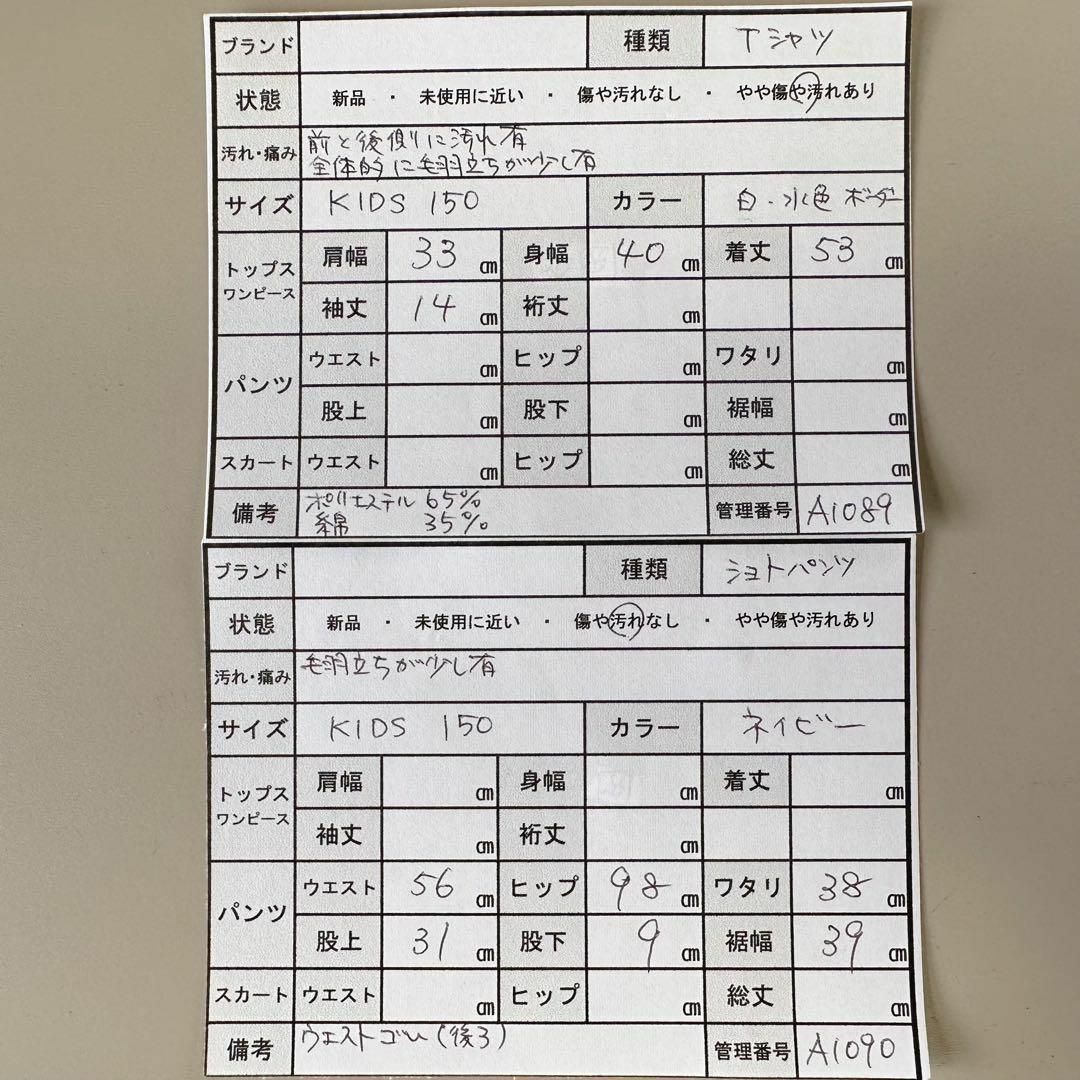 ブランド 種類 Tシャツ
状態 新品 ・ 未使用に近い ・ 傷や汚れなし ・ やや傷や汚れあり
汚れ・痛み 前と後側に汚れ有
全体的に毛羽立ちが少し有
サイズ KIDS 150 カラー 白・水色 ボーダー
トップス ワンピース 肩幅 33 ㎝ 身幅 40 ㎝ 着丈 53 ㎝
袖丈 14 ㎝ 裄丈 ㎝
パンツ ウエスト ㎝ ヒップ ㎝ ワタリ ㎝
股上 ㎝ 股下 ㎝ 裾幅 ㎝
スカート ウエスト ㎝ ヒップ ㎝ 総丈 ㎝
備考 ポリエステル 65%
綿 35%
管理番号 A1089
ブランド 種類 ショトパンツ
状態 新品 ・ 未使用に近い ・ 傷や汚れなし ・ やや傷や汚れあり
汚れ・痛み 毛羽立ちが少し有
サイズ KIDS 150 カラー ネイビー
トップス ワンピース 肩幅 ㎝ 身幅 ㎝ 着丈 ㎝
袖丈 ㎝ 裄丈 ㎝
パンツ ウエスト 56 ㎝ ヒップ 98 ㎝ ワタリ 38 ㎝
股上 31 ㎝ 股下 9 ㎝ 裾幅 39 ㎝
スカート ウエスト ㎝ ヒップ ㎝ 総丈 ㎝
備考 ウェストゴム(後ろ) 管理番号 A1090